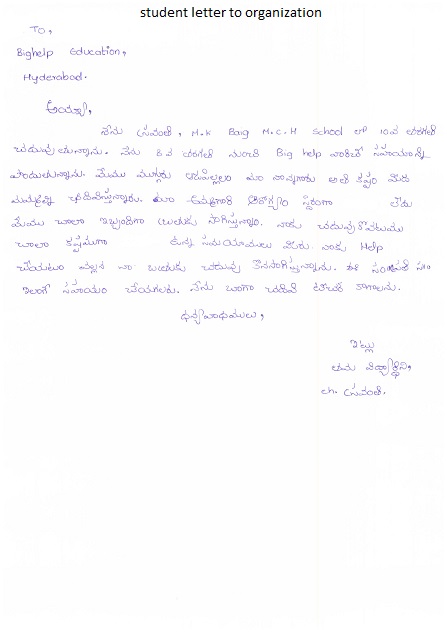 student letter to organization
TO,
Bighelp Education,
Hyderabad.
అయ్యా,
నేను స్రవంతి, M.K Baig M.C.H school లో 10వ తరగతి
చదువుతున్నాను. నేను 8 వ తరగతి నుంచి Big help వారితో సహాయాన్ని
పొందుతున్నాను. మేము ముగ్గురు ఆడపిల్లలం మా నాన్నగారు అతి కష్టం మీద
మమ్మల్ని చదివిస్తున్నారు. మా అమ్మగారి ఆరోగ్యం స్థిరంగా లేదు
మేము చాలా ఇబ్బందిగా బ్రతుకు సాగిస్తున్నాం. నాకు చదువుకోవటము
చాలా కష్టముగా ఉన్న సమయాములు మీరు నాకు Help
చేయటం వల్లన నా బతుకు చదువు కొనసాగిస్తున్నాను. ఈ సంవత్సరం
ఇలాగే సహాయం చేయగలరు. నేను బాగా చదివి టీచర్ కాగాలను.
ధన్యవాధములు,
ఇట్లు
తమ విద్యార్థిని,
ch. స్రవంతి.